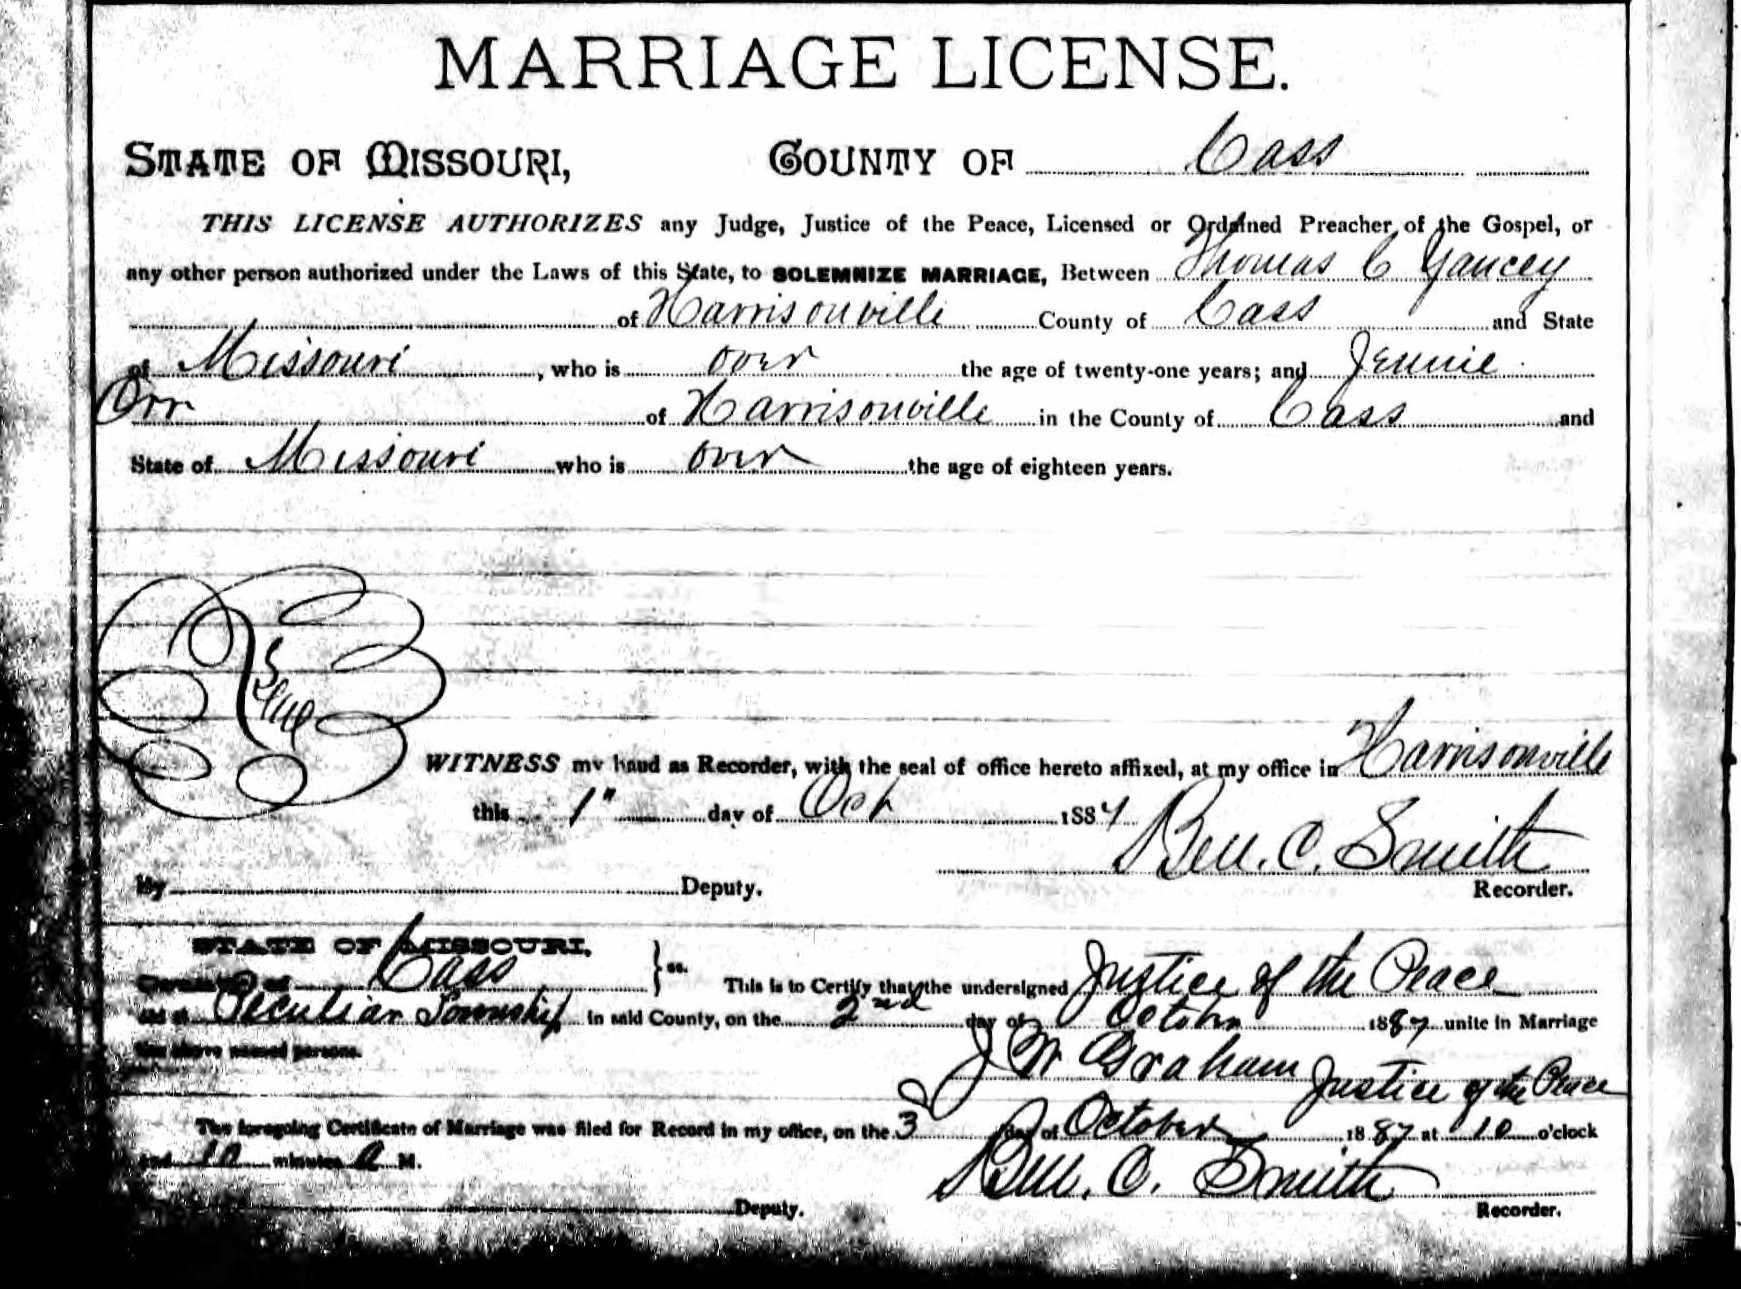 MARRIAGE LICENSE.
STATE OF MISSOURI, COUNTY OF Cass
THIS LICENSE AUTHORIZES any Judge, Justice of the Peace, Licensed or Ordained Preacher of the Gospel, or
any other person authorized under the Laws of this State, to SOLEMNIZE MARRIAGE, Between Thomas C Yancey
of Harrisonville County of Cass and State
of Missouri, who is over the age of twenty-one years; and Jennie
Orr of Harrisonville in the County of Cass and
State of Missouri who is over the age of eighteen years.
WITNESS my hand as Recorder, with the seal of office hereto affixed, at my office in Harrisonville
this 1" day of Oct 1887
Ben. C. Smith
By Deputy. Recorder.
STATE OF MISSOURI,
County of Cass } ss. This is to Certify that the undersigned Justice of the Peace
did at Peculiar Township in said County, on the 2nd day of October 1887 unite in Marriage
the above named persons.
J W Graham Justice of the Peace
The foregoing Certificate of Marriage was filed for Record in my office, on the 3 day of October 1887 at 10 o'clock
and 10 minutes A M.
Ben. C. Smith
Deputy. Recorder.